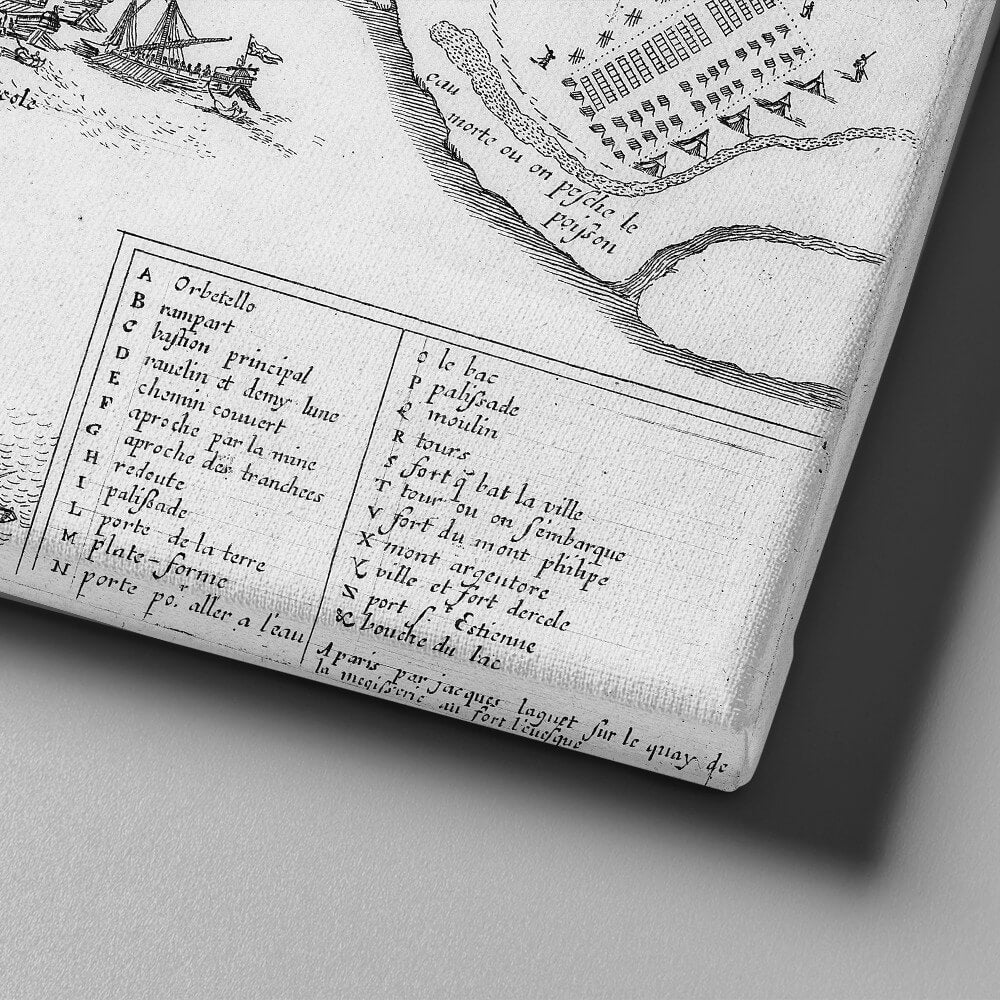 eau
morte ou on pesche le
poisson
A Orbetello
B rampart
C bastion principal
D rauelin et demy lune
E chemin couuert
F aproche par la mine
G aproche des tranchees
H redoute
I palißade
L porte de la terre
M plate-forme
N porte po.r aller a l'eau
O le bac
P palißade
Q moulin
R tours
S fort q̃ bat la ville
T tour ou on s'embarque
V fort du mont philipe
X mont argentore
Y ville et fort dercele
port St Estienne
& bouche du lac
A paris par jacques laguet sur le quay de
la megisserie au fort l'euesque